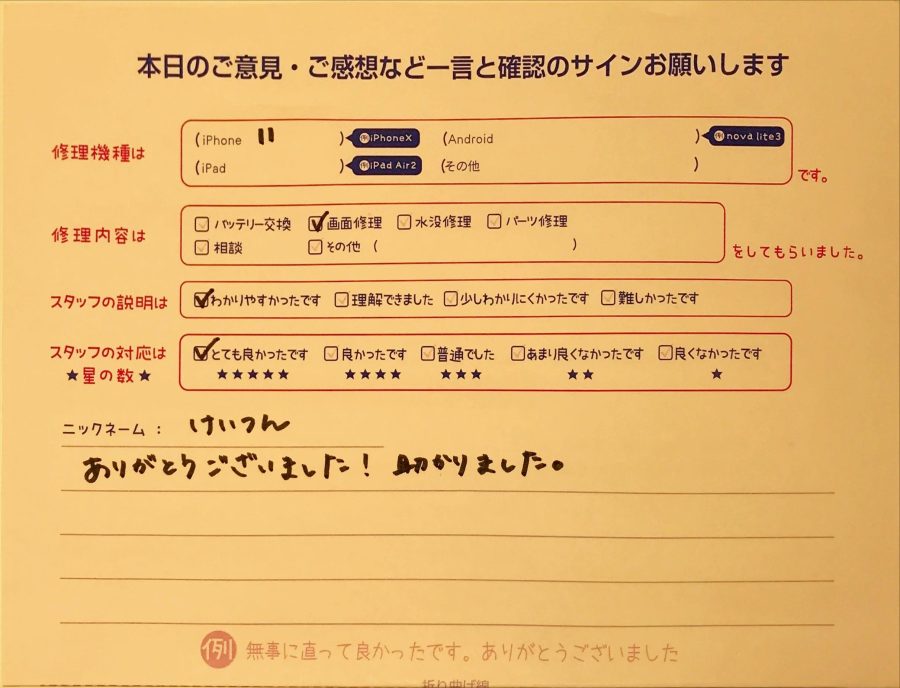 本日のご意見・ご感想など一言と確認のサインお願いします
修理機種は (iPhone 11 ) 例iPhoneX (Android ) 例nova lite3
(iPad ) 例iPad Air2 (その他 ) です。
修理内容は バッテリー交換 ✓画面修理 水没修理 パーツ修理
相談 その他 ( ) をしてもらいました。
スタッフの説明は ✓わかりやすかったです 理解できました 少しわかりにくかったです 難しかったです
スタッフの対応は ✓とても良かったです 良かったです 普通でした あまり良くなかったです 良くなかったです
★星の数★ ★★★★★ ★★★★ ★★★ ★★ ★
ニックネーム： けいつん
ありがとうございました！ 助かりました。
例 無事に直って良かったです。ありがとうございました
折り曲げ線